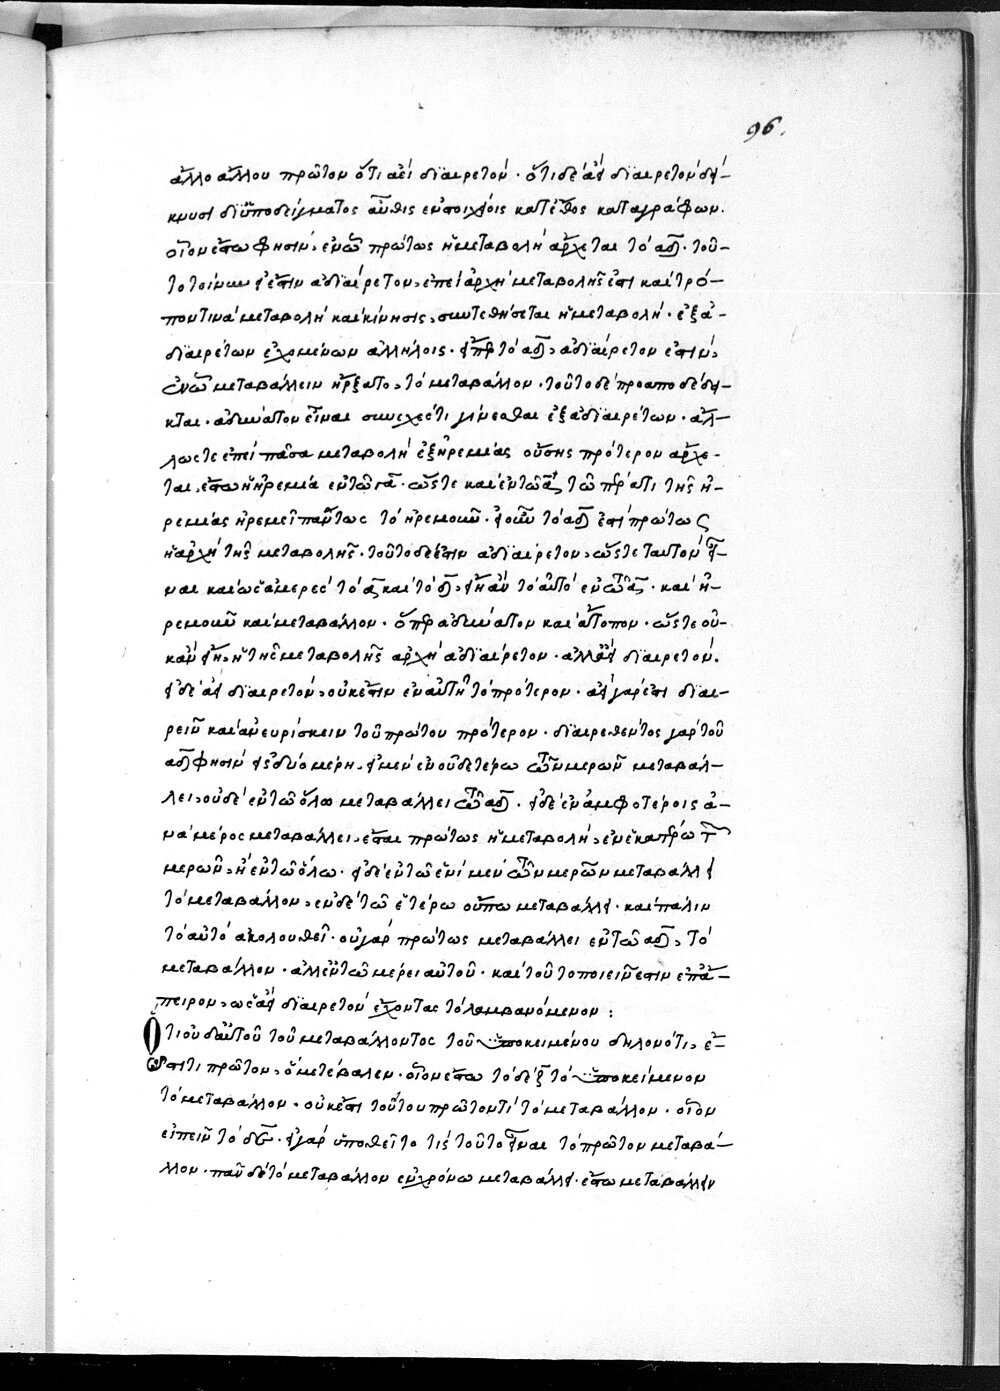 96.
ἄλλο ἄλλου πρῶτον ὅτι ἀεὶ διαιρετόν· ὅτι δὲ ἀεὶ διαιρετὸν δεί-
κνυσι δι' ὑποδείγματος αὖθις ἐν στοιχείοις κατ' ἔθος καταγράφων.
οἷον ἔστω φησιν, ἐν ὧ πρώτως ἡ μεταβολὴ ἄρχεται τὸ αδ· τοῦ-
το τοίνυν εἰ ἔστιν ἀδιαίρετον, ἐπεὶ ἀρχὴ μεταβολῆς ἐστι καὶ τρό-
πον τινὰ μεταβολὴ καὶ κίνησις, συντεθήσεται ἡ μεταβολὴ· ἐξ ἀ-
διαιρέτων ἐχομένων ἀλλήλοις· εἴπερ τὸ αδ, ἀδιαίρετον ἐστιν,
ἐν ὧ μεταβάλλειν ἤρξατο, τὸ μεταβάλλον· τοῦτο δὲ προαποδέδει-
κται· ἀδύνατον εἶναι συνεχές τι γίνεσθαι ἐξ ἀδιαιρέτων· ἄλ-
λως τε ἐπεὶ πᾶσα μεταβολὴ ἐξ ἠρεμίας οὔσης πρότερον ἄρχε-
ται, ἔστω ἡ ἠρεμία ἐν τῶ γα· ὥστε καὶ ἐν τῶ α τῶ πέρατι τῆς ἠ-
ρεμίας ἠρεμεῖ πάντως τὸ ἠρεμοῦν· εἰ οὖν τὸ αδ ἐστὶ πρώτως
ἡ ἀρχὴ τῆς μεταβολῆς· τοῦτο δέ ἐστιν ἀδιαίρετον, ὥστε ταυτὸν εἶ-
ναι καὶ ὡς ἀμερὲς τὸ α καὶ τὸ δ, εἴη ἂν τὸ αὐτὸ ἐν τῶ α· καὶ ἠ-
ρεμοῦν καὶ μεταβάλλον· ὅπερ ἀδύνατον καὶ ἄτοπον· ὥστε οὐ-
κ ἂν εἴη, ἡ τῆς μεταβολῆς ἀρχὴ ἀδιαίρετον· ἀλλ' ἀεὶ διαιρετόν.
εἰ δὲ ἀεὶ διαιρετόν, οὐκ ἔστιν ἐν αὐτῆ τὸ πρότερον· ἀεὶ γάρ ἐστι διαι-
ρεῖν καὶ ἀνευρίσκειν τοῦ πρώτου πρότερον· διαιρεθέντος γὰρ τοῦ
αδ φησὶν εἰς δύο μέρη, εἰ μὲν ἐν οὐδετέρω τῶν μερῶν μεταβάλ-
λει, οὐδὲ ἐν τῶ ὅλω μεταβάλλει τῶ αδ· εἰ δὲ ἐν ἀμφοτέροις ἀ-
νὰ μέρος μεταβάλλει, ἔσται πρώτως ἡ μεταβολὴ, ἐν ἑκατέρω τῶν
μερῶν, ἢ ἐν τῶ ὅλω· εἰ δὲ ἐν τῶ ἑνὶ μὲν τῶν μερῶν μεταβάλλει
τὸ μεταβάλλον, ἐν δὲ τῶ ἑτέρω οὔπω μεταβάλλει· καὶ πάλιν
τὸ αὐτὸ ἀκολουθεῖ· οὐ γὰρ πρώτως μεταβάλλει ἐν τῶ αδ, τὸ
μεταβάλλον· ἀλλ' ἐν τῶ μέρει αὐτοῦ· καὶ τοῦτο ποιεῖν ἔστιν ἐπ' ἄ-
πειρον, ὡς ἀεὶ διαιρετὸν ἔχοντας τὸ λαμβανόμενον :
Ὅτι οὐδ' αὐτοῦ τοῦ μεταβάλλοντος τοῦ ὑποκειμένου δηλονότι, ἔ-
στι τι πρῶτον, ὃ μετέβαλεν· οἷον ἔστω τὸ δε τὸ ὑποκείμενον
τὸ μεταβάλλον· οὐκ ἔστι τούτου πρῶτόν τι τὸ μεταβάλλον· οἷον
εἰπεῖν τὸ δζ· εἰ γὰρ ὑποθεῖτο τὶς τοῦτο εἶναι τὸ πρῶτον μεταβά-
λλον· πᾶν δὲ τὸ μεταβάλλον ἐν χρόνω μεταβάλλει· ἔστω μεταβάλλειν